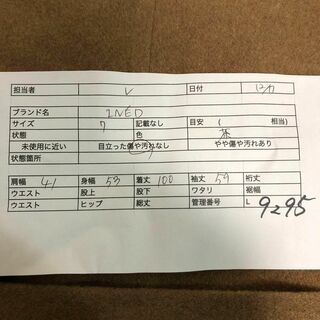 担当者 V 日付 12/7
ブランド名 INED
サイズ 7 記載なし 目安 ( 相当)
状態 色 茶
未使用に近い 目立った傷や汚れなし やや傷や汚れあり
状態箇所
肩幅 41 身幅 53 着丈 100 袖丈 59 裄丈
ウエスト 股上 股下 ワタリ 裾幅
ウエスト ヒップ 総丈 管理番号 L 9295